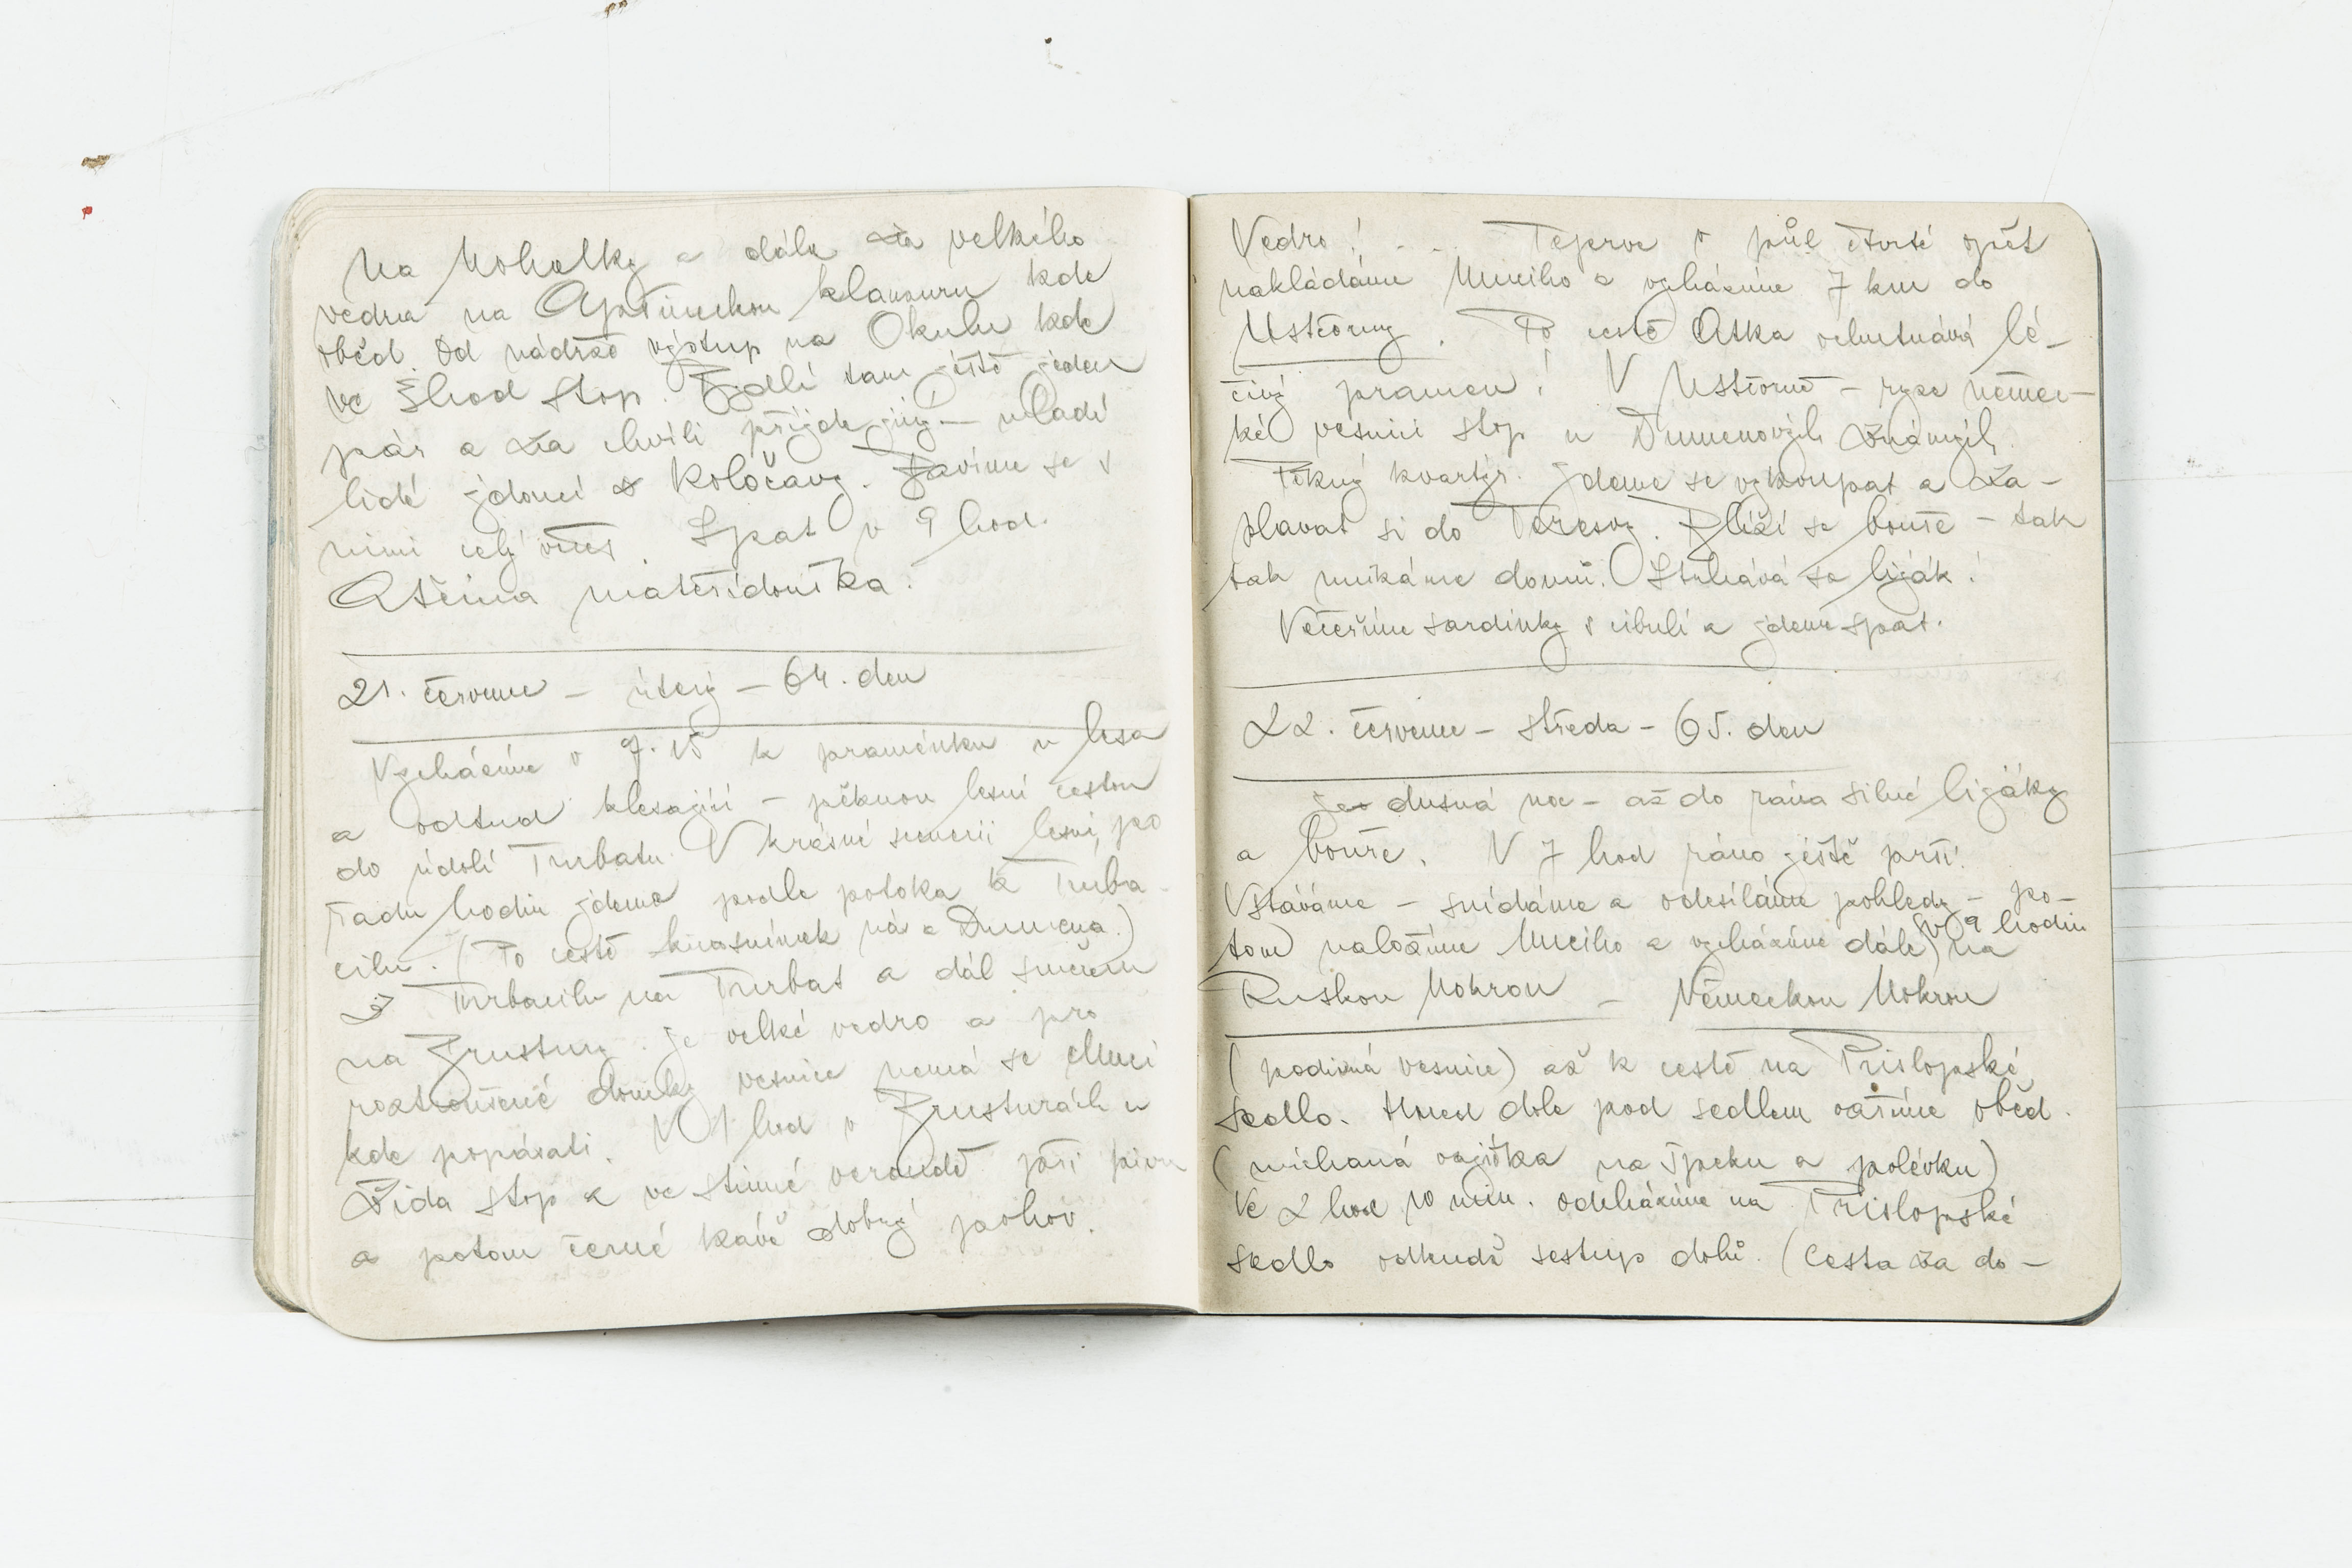 na Moholky a dále za velkého
vedra na Apšineckou klausuru kde
oběd. Od nádrže výstup na Okulu kde
ve 5 hod stop. Bydlí tam ještě jeden
pár a za chvíli přijde jiný — mladí
lidé jdoucí z Koločavy. Bavíme se s
nimi celý večer. Spat v 9 hod.
Ašina mateřídouška!
21. července — úterý — 64. den
Vycházíme v 7.15 k praménku v lese
a odtud klesající — pěknou lesní cestou
do údolí Turbatu. V krásné scenerii lesní, po
řadu hodin jdeme podle potoka k Turba-
cilu. (Po cestě krasnímek ná a Dumena.)
Turbacilu na Turbat a dál směrem
na Brustury. Je velké vedro a pro
roztroušené domky vesnice nemá se Muci
kde popásati. V 1 hod v Brusturách u
Žida stop a ve stinné verandě při pivu
a potom černé kávě dobrý pohov.
Vedro! . . . Teprve v půl čtvrté opět
nakládáme Muciho a vycházíme 7 km do
Ustčorny. Po cestě Aťka ochutnává lé-
čivý pramen! V Ustčorně — ryze němec-
ké vesnici stop u Dumenových známých.
Pěkný kvartýr. Jdeme se vykoupat a za-
plavat si do Teresvy. Blíží se bouře — tak
tak unikáme domů. Strhává se liják!
Večeříme sardinky s cibulí a jdeme spat.
22. července — středa — 65. den
Je dusná noc — až do rána silné lijáky
a bouře. V 7 hod ráno ještě prší!
Vstáváme — snídáme a odesíláme pohledy — po-
tom naložíme Muciho a vycházíme dále (v 9 hodin) na
Ruskou Mokrou — Německou Mokrou
(podivná vesnice) až k cestě na Prislopské
sedlo. Hned dole pod sedlem vaříme oběd.
(míchaná vajíčka na špeku a polévku)
Ve 2 hod 10 min. odcházíme na Prislopské
sedlo odkudž sestup dolů. (Cesta za do-